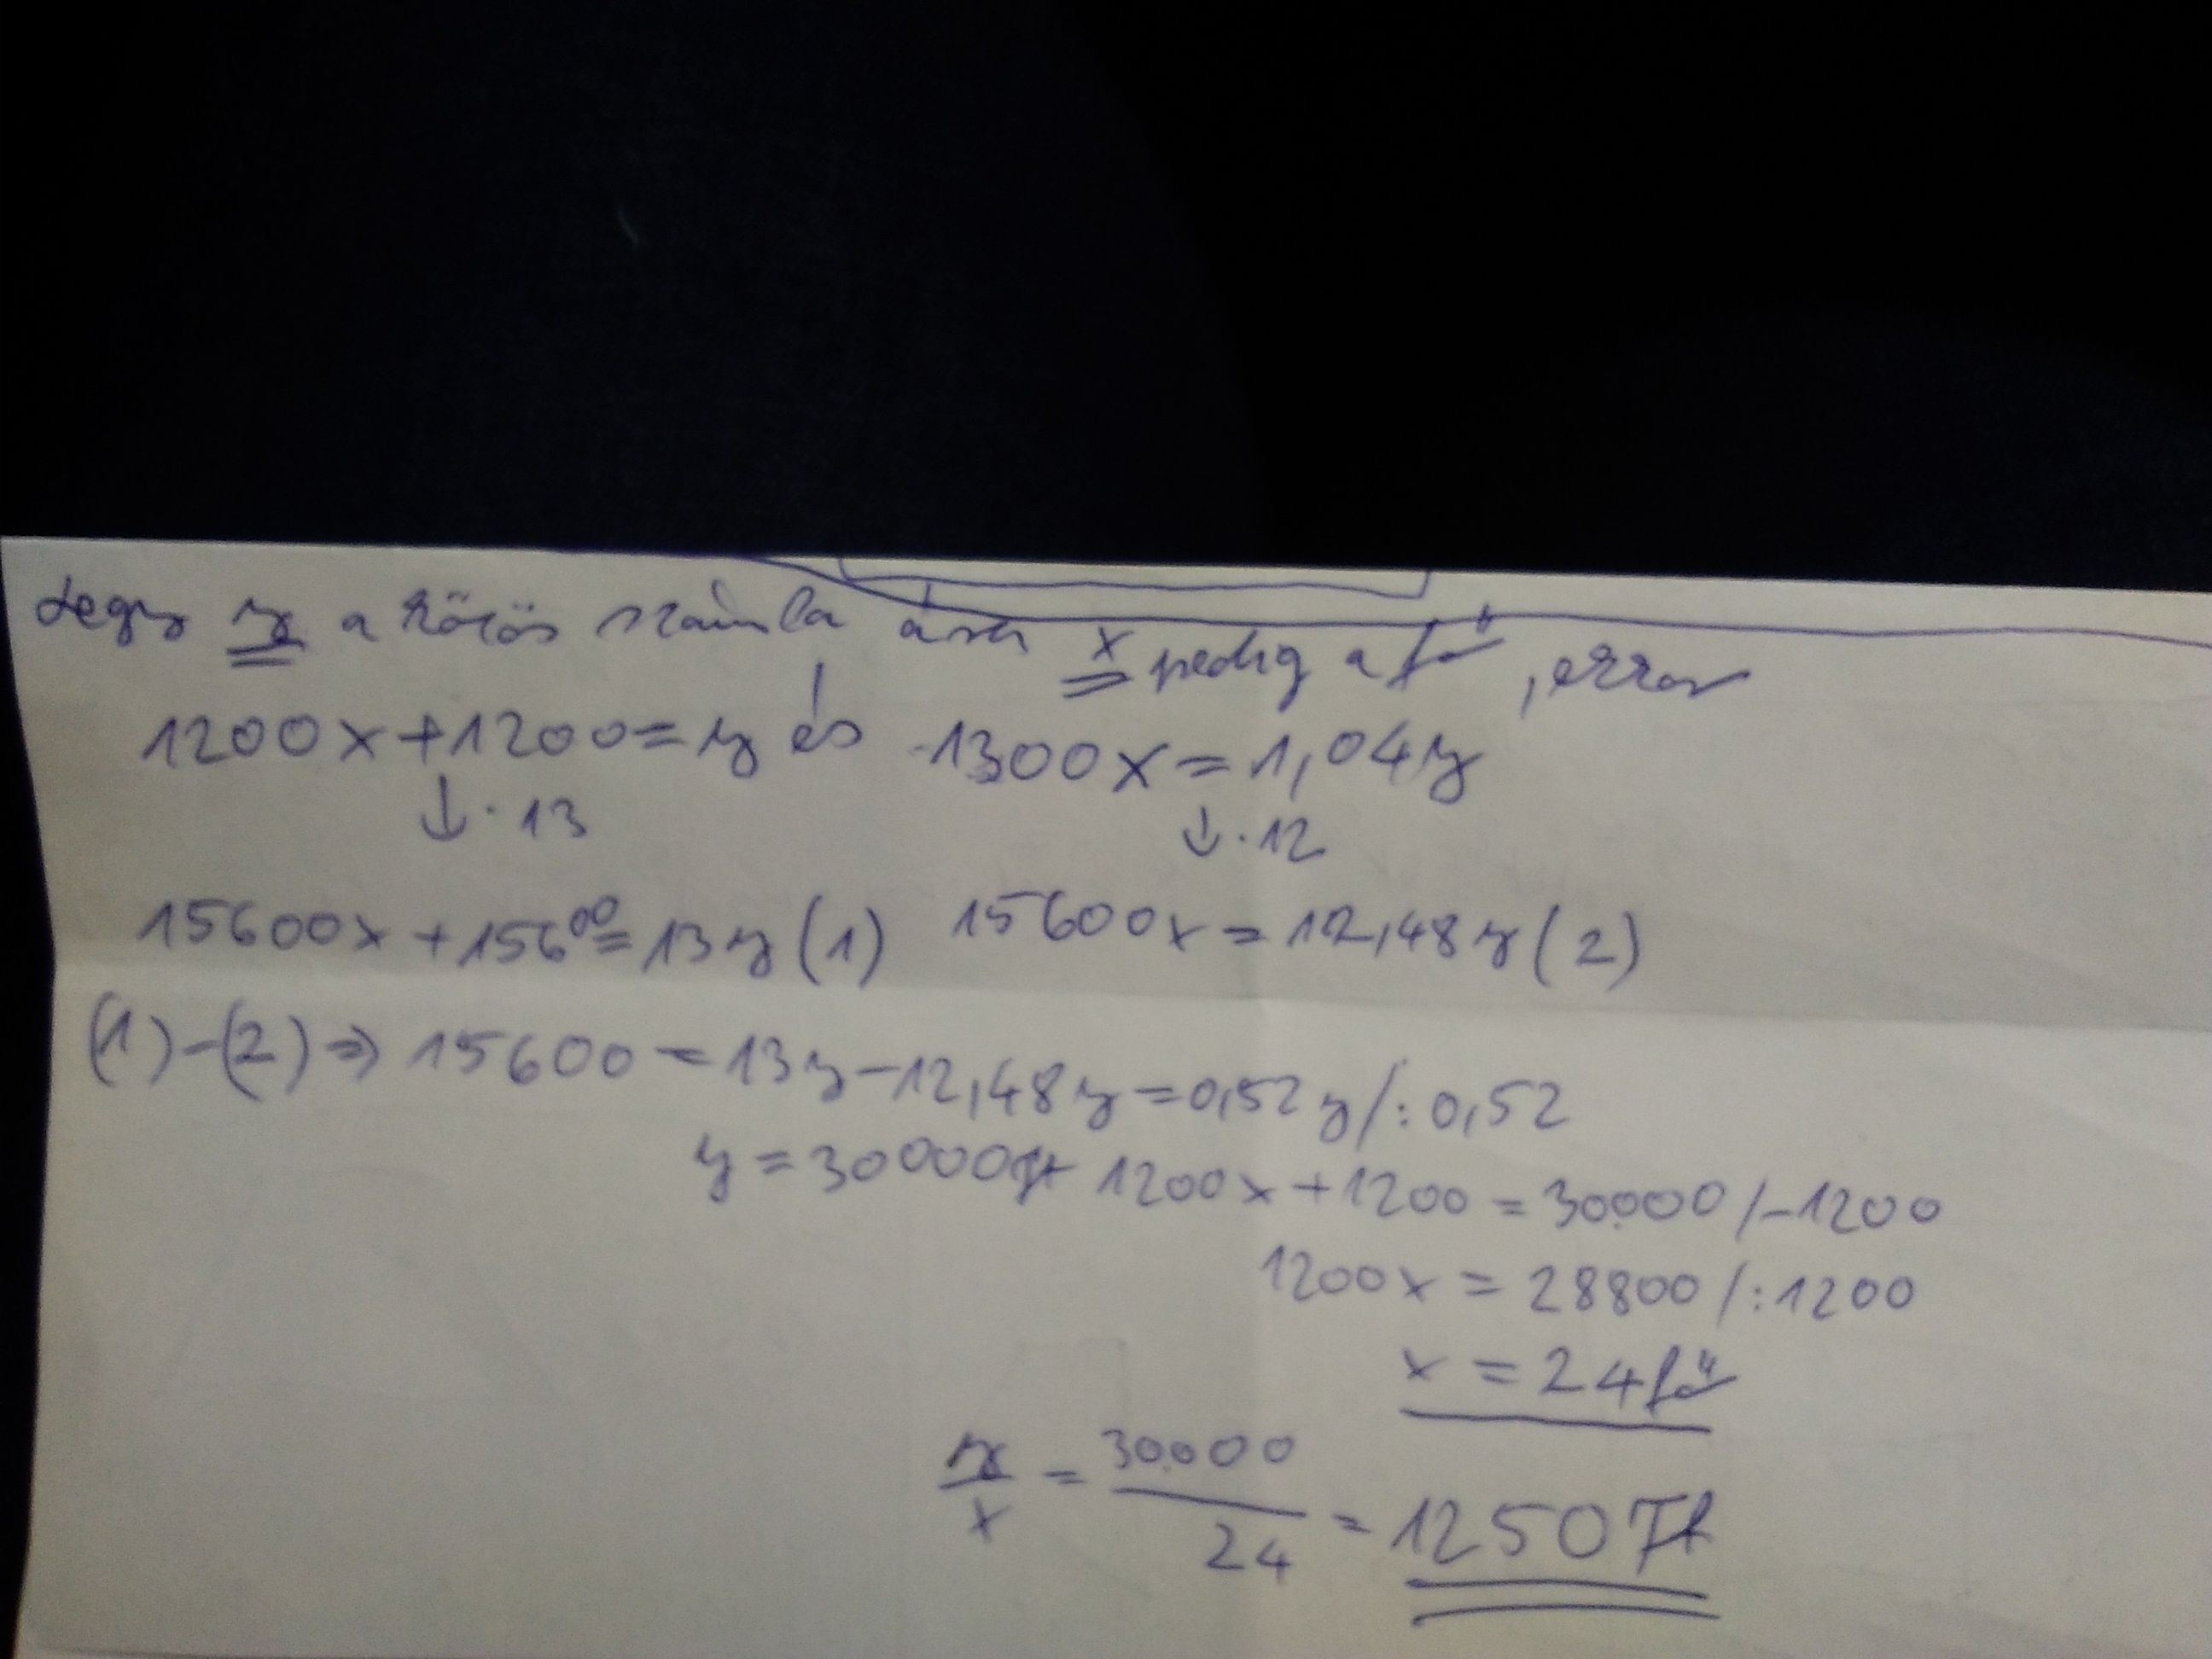 Legyen y a közös számla ára x pedig a fő, ekkor
1200x+1200=y és 1300x=1,04y
↓·13 ↓·12
15600x+15600=13y (1) 15600x=12,48y (2)
(1)-(2)⇒15600=13y-12,48y=0,52y/:0,52
y=30000Ft 1200x+1200=30000/-1200
1200x=28800/:1200
x=24fő
y/x=30000/24=1250Ft